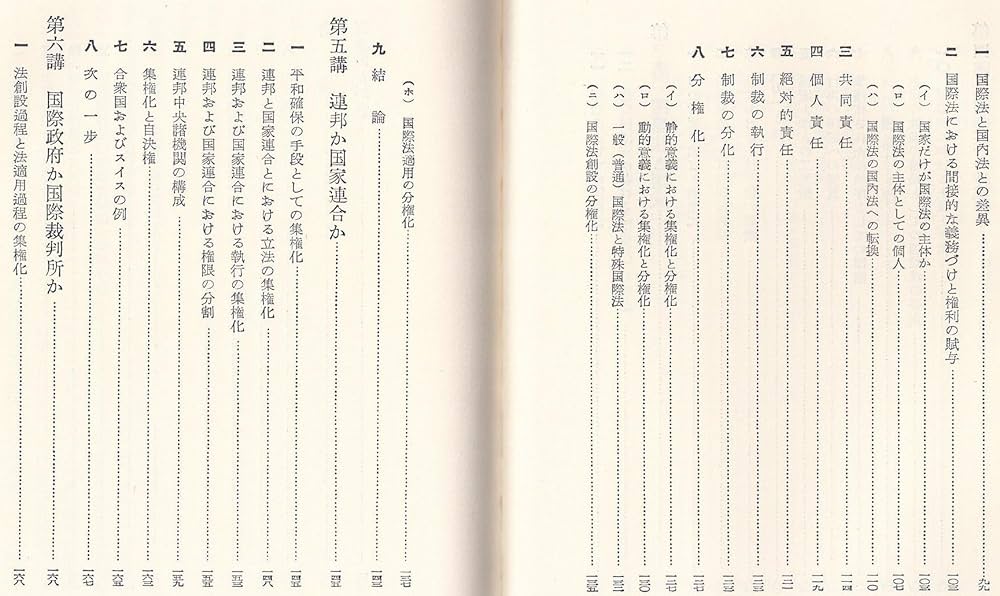 一 国際法と国内法との差異……九九
二 国際法における間接的な義務づけと権利の賦与……一〇三
(イ) 国家だけが国際法の主体か……一〇三
(ロ) 国際法の主体としての個人……一〇七
(ハ) 国際法の国内法への転換……一一〇
三 共同責任……一一四
四 個人責任……一一九
五 絶対的責任……一二一
六 制裁の執行……
七 制裁の分化……
八 分権化……一二七
(イ) 静的意義における集権化と分権化……一二七
(ロ) 動的意義における集権化と分権化……一三〇
(ハ) 一般(普通)国際法と特殊国際法……
(ニ) 国際法創設の分権化……一三五
(ホ) 国際法適用の分権化……一三七
九 結論……
第五講 連邦か国家連合か……一四五
一 平和確保の手段としての集権化……一四五
二 連邦と国家連合とにおける立法の集権化……一四八
三 連邦および国家連合における執行の集権化……一五三
四 連邦および国家連合における権限の分割……一五五
五 連邦中央諸機関の構成……一五九
六 集権化と自決権……一六三
七 合衆国およびスイスの例……一六五
八 次の一歩……一六七
第六講 国際政府か国際裁判所か……一六八
一 法創設過程と法適用過程の集権化……一六八